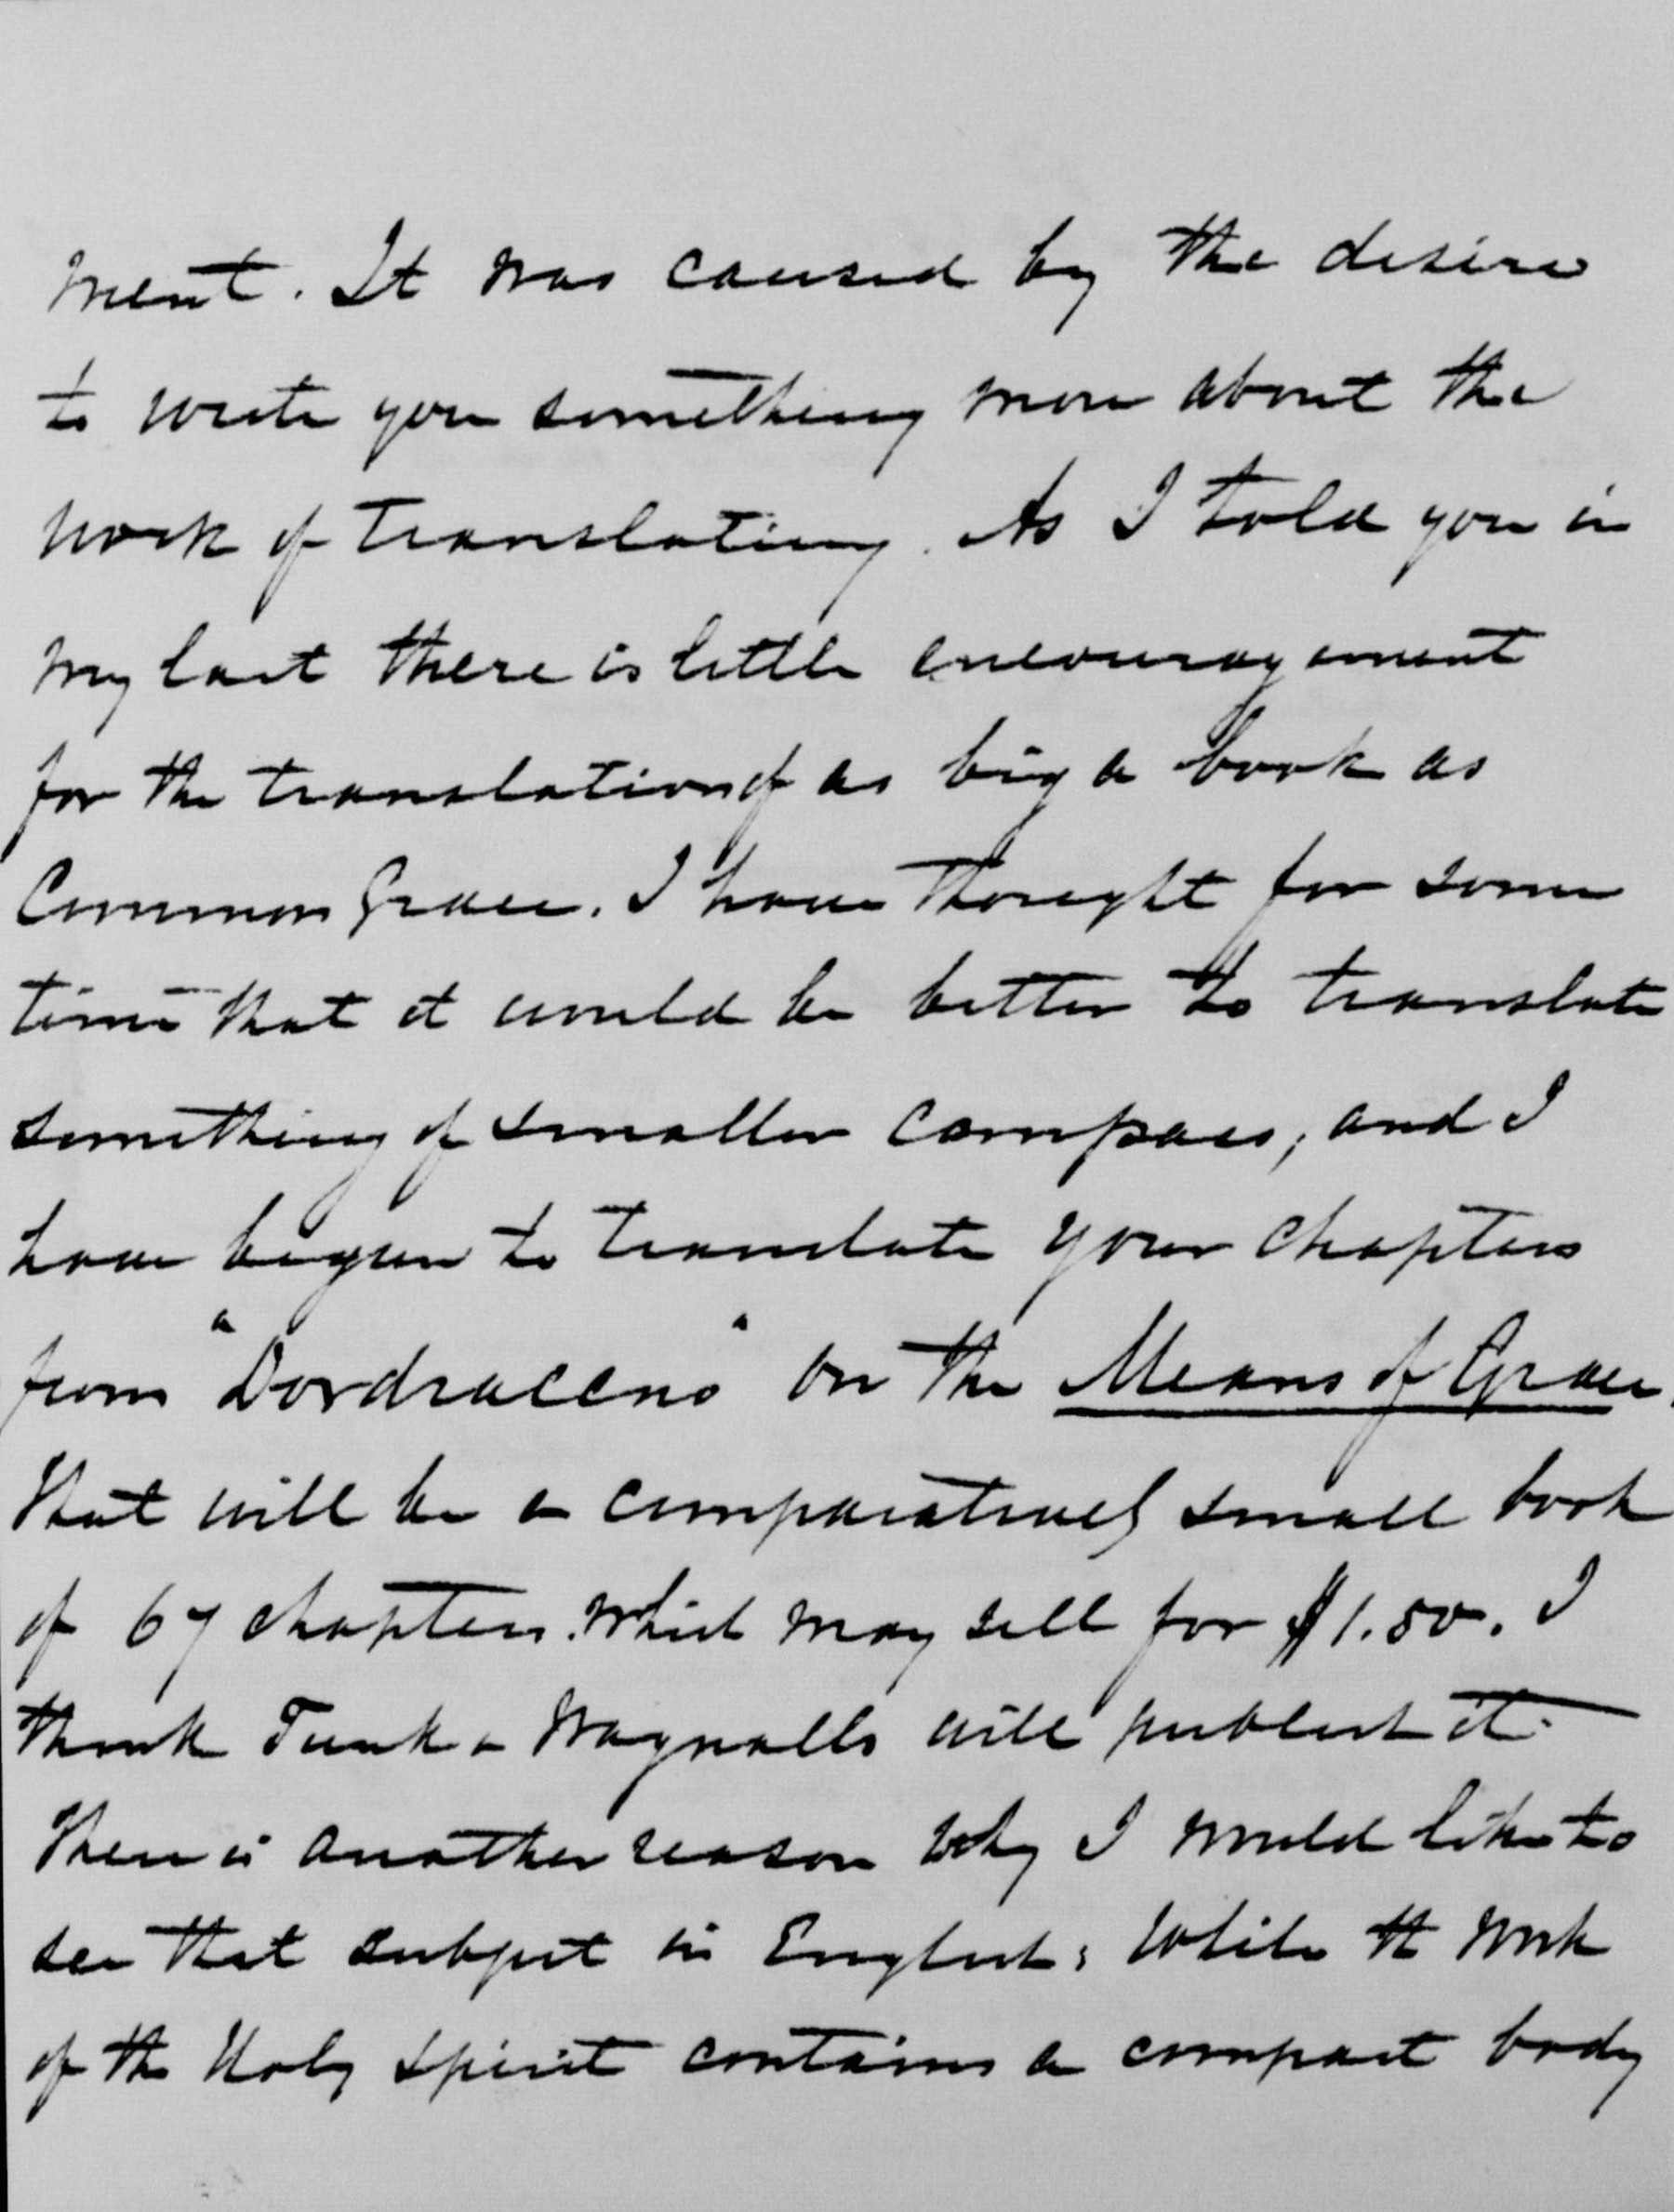 ment. It was caused by the desire
to write you something more about the
work of translating. As I told you in
my last there is little encouragement
for the translation of as big a book as
Common Grace. I have thought for some
time that it would be better to translate
something of smaller compass, and I
have begun to translate your chapters
from "Dordraceno" on the Means of Grace.
That will be a comparatively small book
of 67 chapters. Which may sell for $1.50. I
think Funk & Wagnalls will publish it.
There is another reason why I would like to
see that subject in English: While the Work
of the Holy Spirit contains a compact body